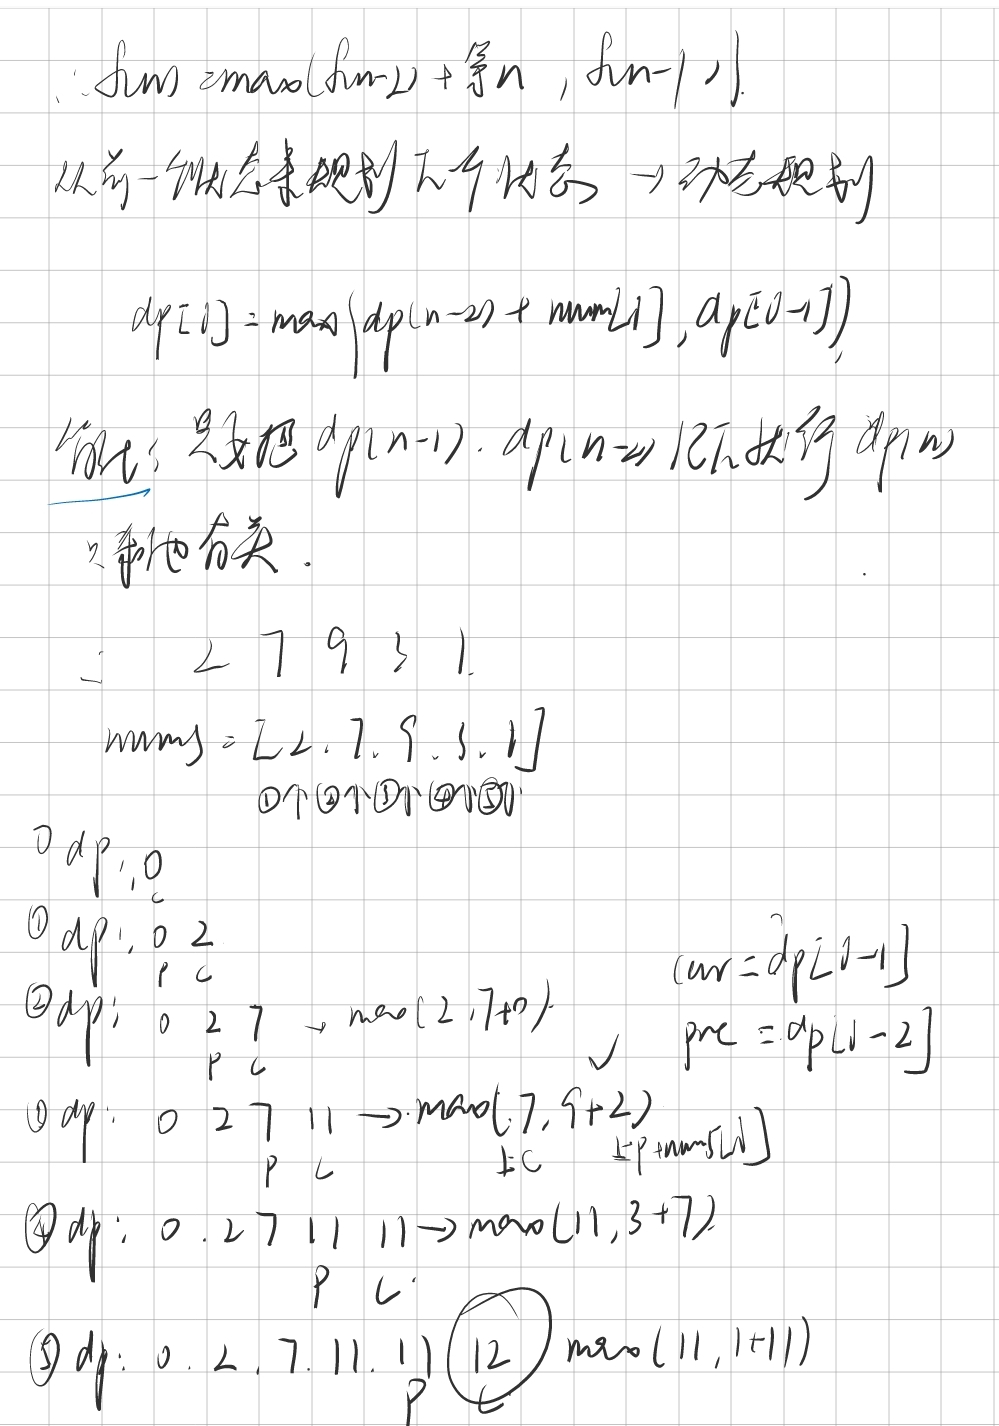 ∴ f(n) = max(f(n-2) + 第n , f(n-1))
从前一个状态来规划下个状态 → 动态规划
dp[i] = max(dp(n-2) + num[i], dp[i-1])
优化: 只要把 dp(n-1). dp(n-2) 记下 执行 dp(n)
只和他有关.
∴ 2 7 9 3 1
nums = [2. 7. 9. 3. 1]
①个 ②个 ③个 ④个 ⑤个
0 dp: 0
c
① dp: 0 2
P C
cur = dp[i-1]
② dp: 0 2 7 → max(2, 7+0)
P C
pre = dp[i-2]
✓
③ dp: 0 2 7 11 → max(7, 9+2)
P C 上c 上P+nums[i]
④ dp: 0. 2 7 11 11 → max(11, 3+7)
P C
⑤ dp: 0. 2. 7. 11. 11 12 max(11, 1+11)
P C